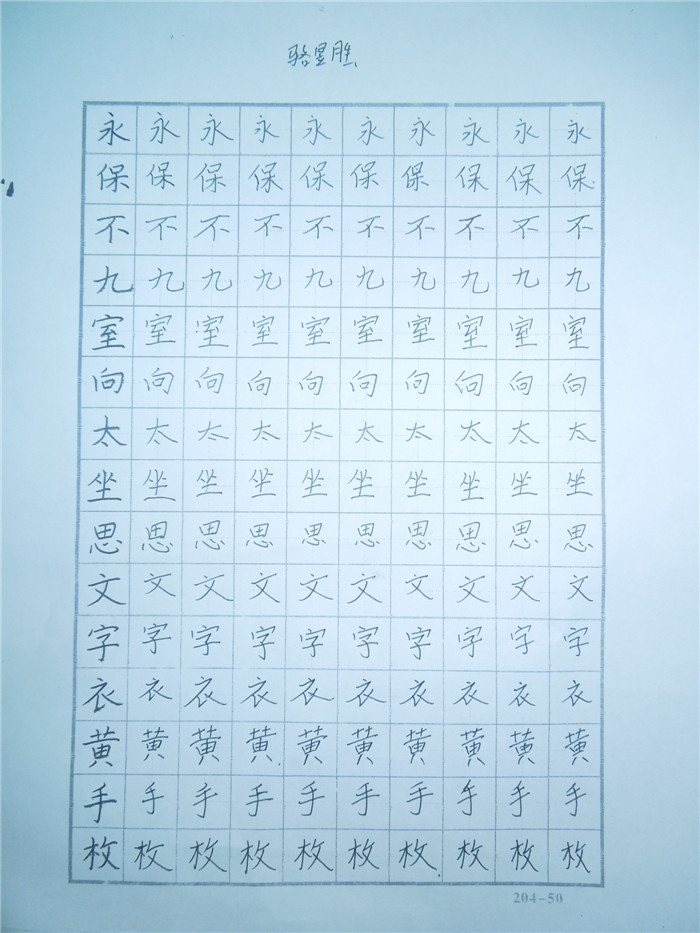 骆昱胜
永永永永永永永永永永
保保保保保保保保保保
不不不不不不不不不不
九九九九九九九九九九
室室室室室室室室室室
向向向向向向向向向向
太太太太太太太太太太
坐坐坐坐坐坐坐坐坐坐
思思思思思思思思思思
文文文文文文文文文文
字字字字字字字字字字
衣衣衣衣衣衣衣衣衣衣
黄黄黄黄黄黄黄黄黄黄
手手手手手手手手手手
枚枚枚枚枚枚枚枚枚枚
204-50